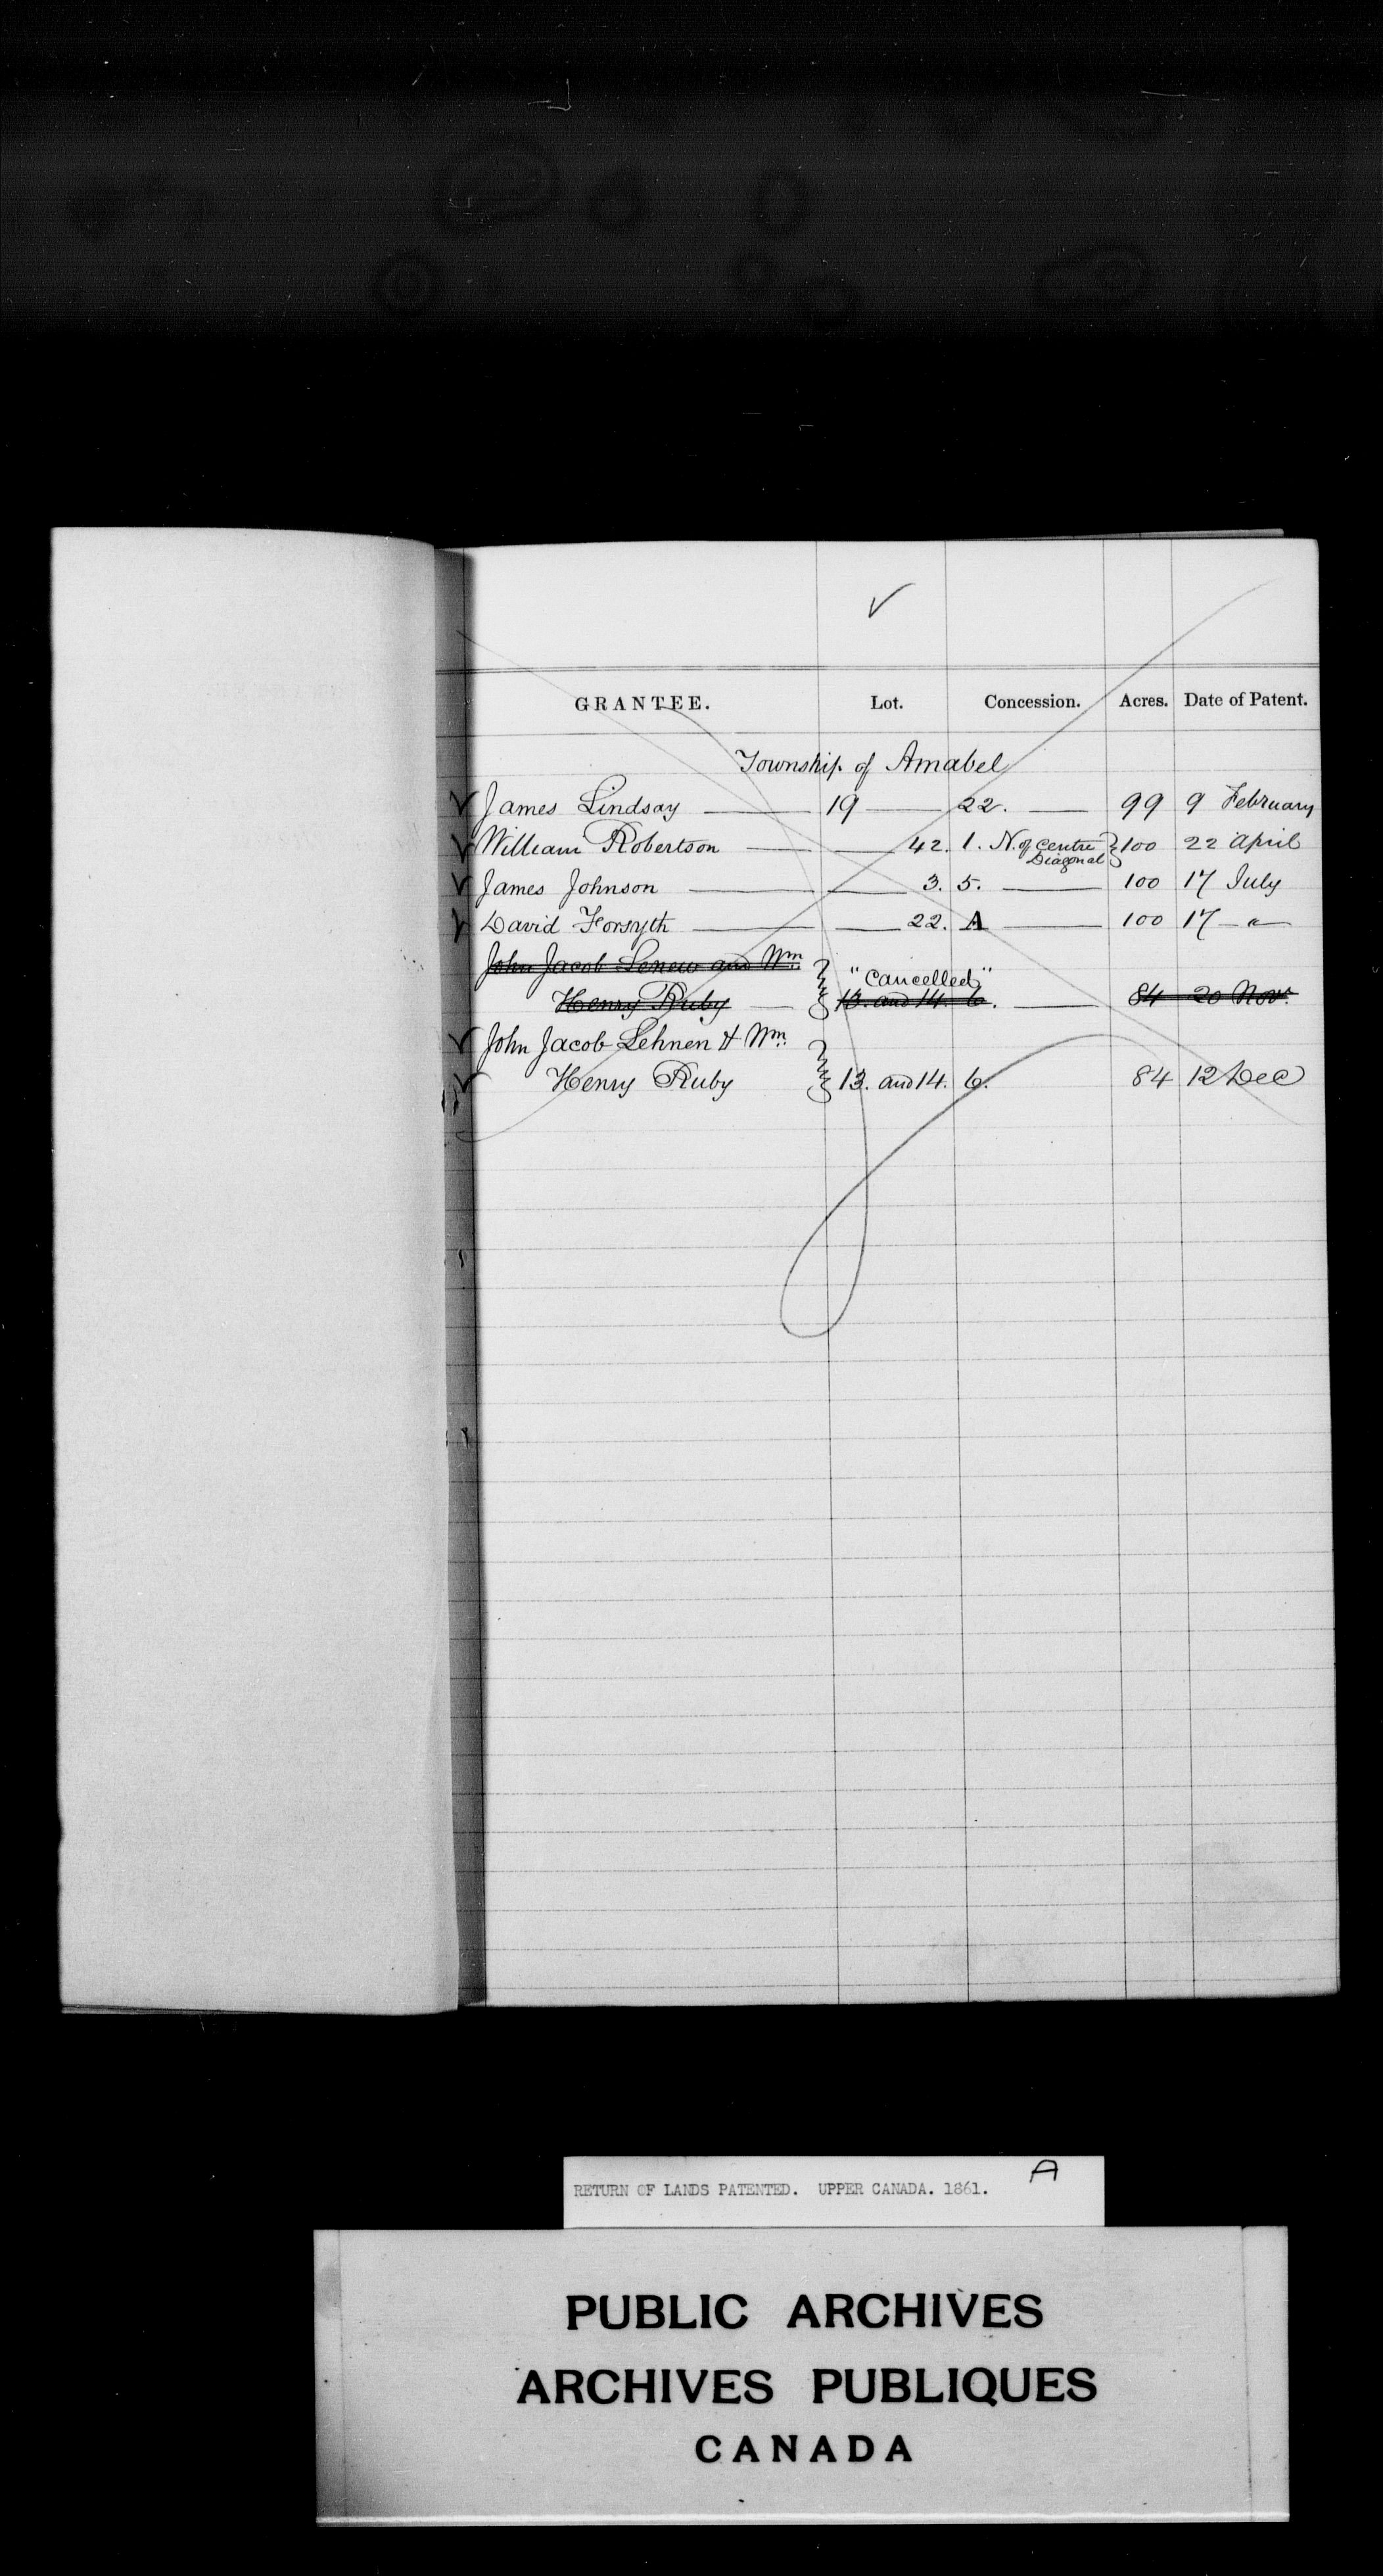 GRANTEE. Lot. Concession. Acres. Date of Patent.
Township of Amabel
James Lindsay 19 22. 99 9 February
William Robertson 42. 1. N. of Centre Diagonal 100 22 April
James Johnson 3. 5. 100 17 July
David Forsyth 22. A 100 17 "
John Jacob Lenew and Wm.
"Cancelled"
Henry Ruby 13. and 14. 6. 84 20 Novr.
John Jacob Lehnen & Wm.
Henry Ruby 13. and 14. 6. 84 12 Dec
RETURN OF LANDS PATENTED. UPPER CANADA. 1861. A
PUBLIC ARCHIVES
ARCHIVES PUBLIQUES
CANADA